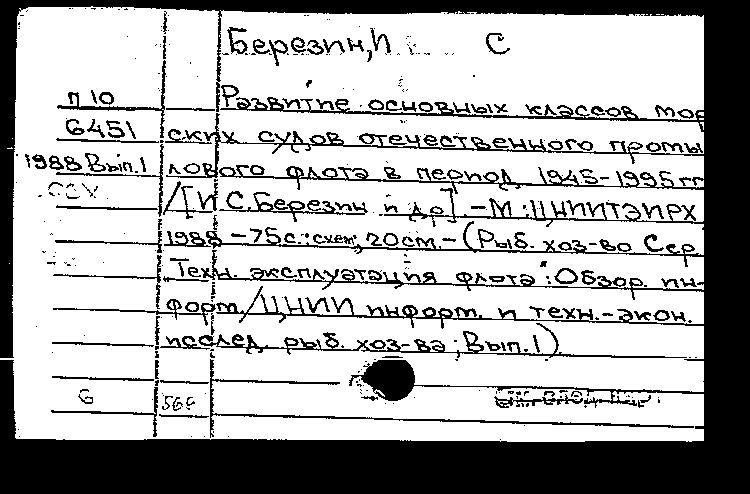 Березин, И С
П 10
6451
1988 Вып.1
ССХ
Развитие основных классов мор
ских судов отечественного промы
лового флота в период 1945-1995 гг
/[И.С.Березин и др]. - М : ЦНИИТЭИРХ
1988 - 75с.:схем; 20см. - (Рыб. хоз-во Сер.
"Техн. эксплуатация флота": Обзор. ин-
форм. / ЦНИИ информ. и техн.-экон.
исслед. рыб. хоз-ва; Вып.1)